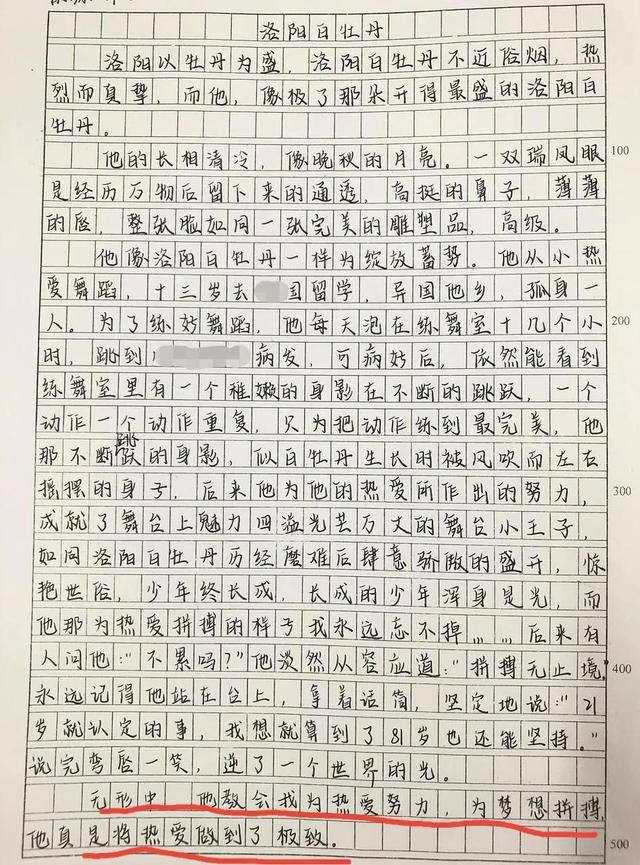 洛阳白牡丹
洛阳以牡丹为盛，洛阳白牡丹不近俗烟，热
烈而真挚，而他，像极了那朵开得最盛的洛阳白
牡丹。
他的长相清冷，像晚秋的月亮。一双瑞凤眼
100
是经历万物后留下来的通透，高挺的鼻子，薄薄
的唇，整张脸如同一张完美的雕塑品，高级。
他像洛阳白牡丹一样为绽放蓄势。他从小热
爱舞蹈，十三岁去国留学，异国他乡，孤身一
人。为了练好舞蹈，他每天泡在练舞室十几个小
200
时，跳到病发，可病好后，依然能看到
练舞室里有一个稚嫩的身影在不断的跳跃，一个
动作一个动作重复，只为把动作练到最完美，他
那不断跳跃的身影，似白牡丹生长时被风吹而左右
摇摆的身子，后来他为他的热爱所作出的努力，
300
成就了舞台上魅力四溢光芒万丈的舞台小王子，
如同洛阳白牡丹历经磨难后肆意骄傲的盛开，惊
艳世俗，少年终长成，长成的少年浑身是光，而
他那为热爱拼搏的样子我永远忘不掉……后来有
人问他："不累吗？"他淡然从容应道："拼搏无止境。"
400
永远记得他站在台上，拿着话筒，坚定地说："21
岁就认定的事，我想就算到了81岁也还能坚持。"
说完弯唇一笑，逆了一个世界的光。
无形中，他教会我为热爱努力，为梦想拼搏，
他真是将热爱做到了极致。
500